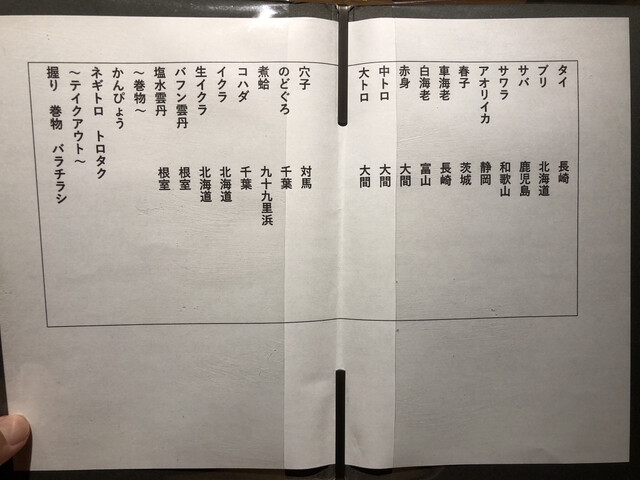 タイ　長崎
ブリ　北海道
サバ　鹿児島
サワラ　和歌山
アオリイカ　静岡
春子　茨城
車海老　長崎
白海老　富山
赤身　大間
中トロ　大間
大トロ　大間
穴子　対馬
のどぐろ　千葉
煮蛤　九十九里浜
コハダ　千葉
イクラ　北海道
生イクラ　北海道
バフン雲丹　根室
塩水雲丹　根室
〜巻物〜
かんぴょう
ネギトロ　トロタク
〜テイクアウト〜
握り　巻物　バラチラシ